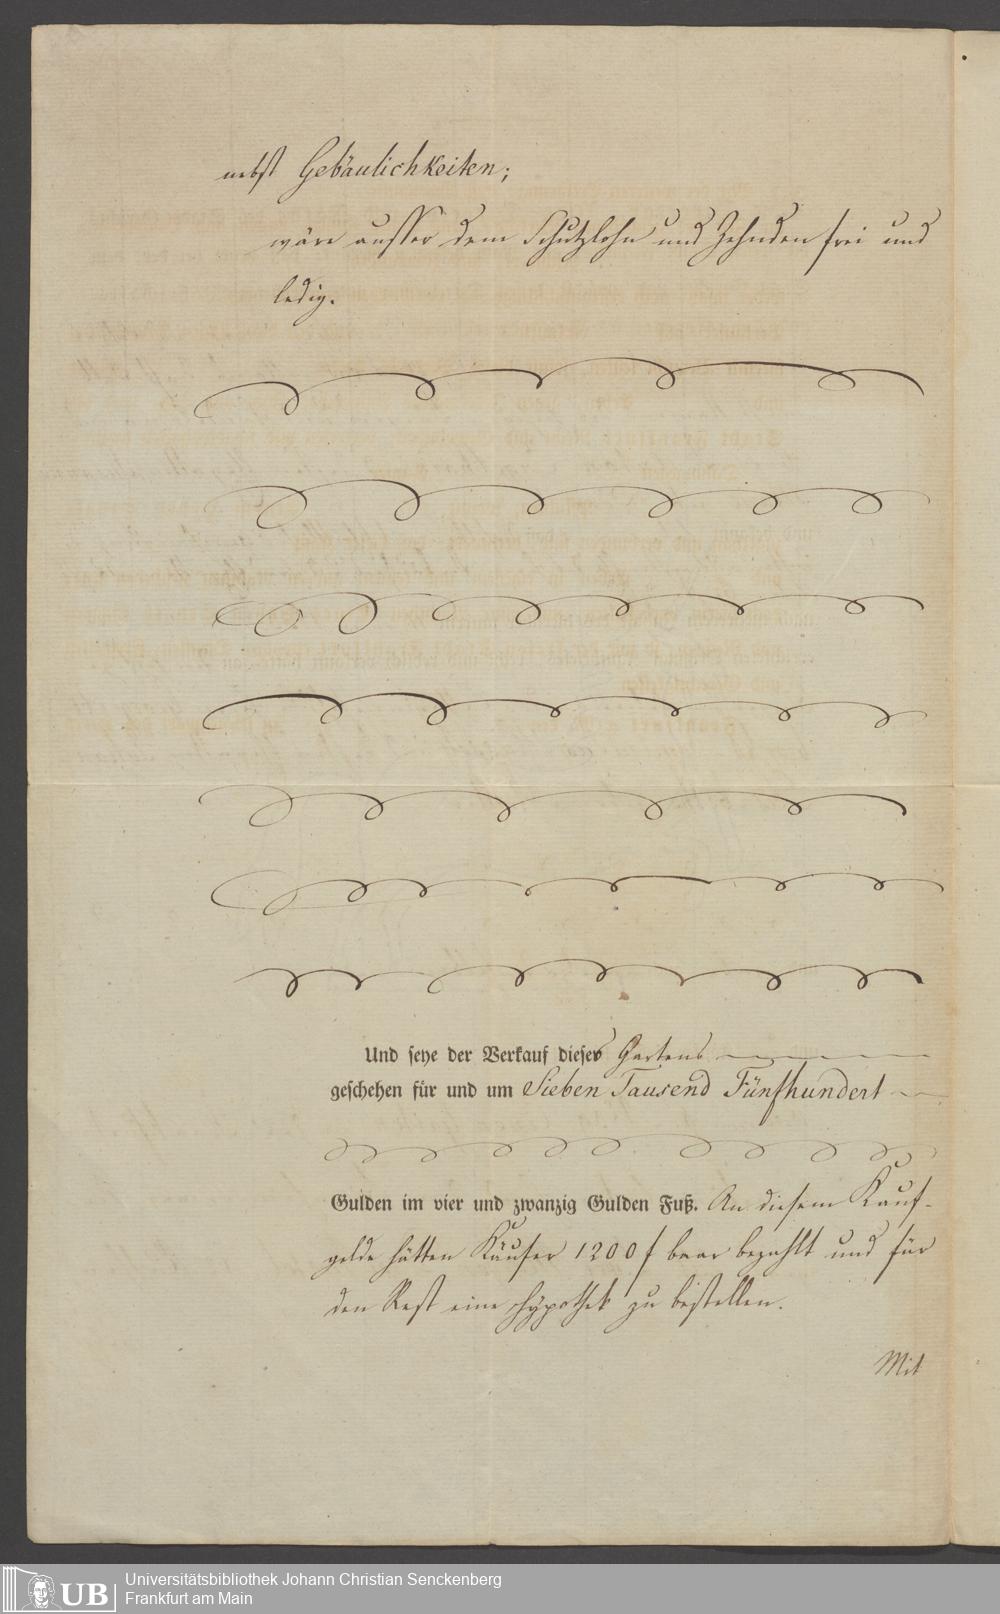 nebst Gebäulichkeiten;
wäre ausser dem Schutzlohn und Zehnden frei und
ledig.
Und seye der Verkauf dieses Gartens
geschehen für und um Sieben Tausend Fünfhundert
Gulden im vier und zwanzig Gulden Fuß. An diesem Kauf-
gelde hätten Käufer 1200 f baar bezahlt und für
den Rest eine Hypothek zu bestellen.
Mit
UB
Universitätsbibliothek Johann Christian Senckenberg
Frankfurt am Main